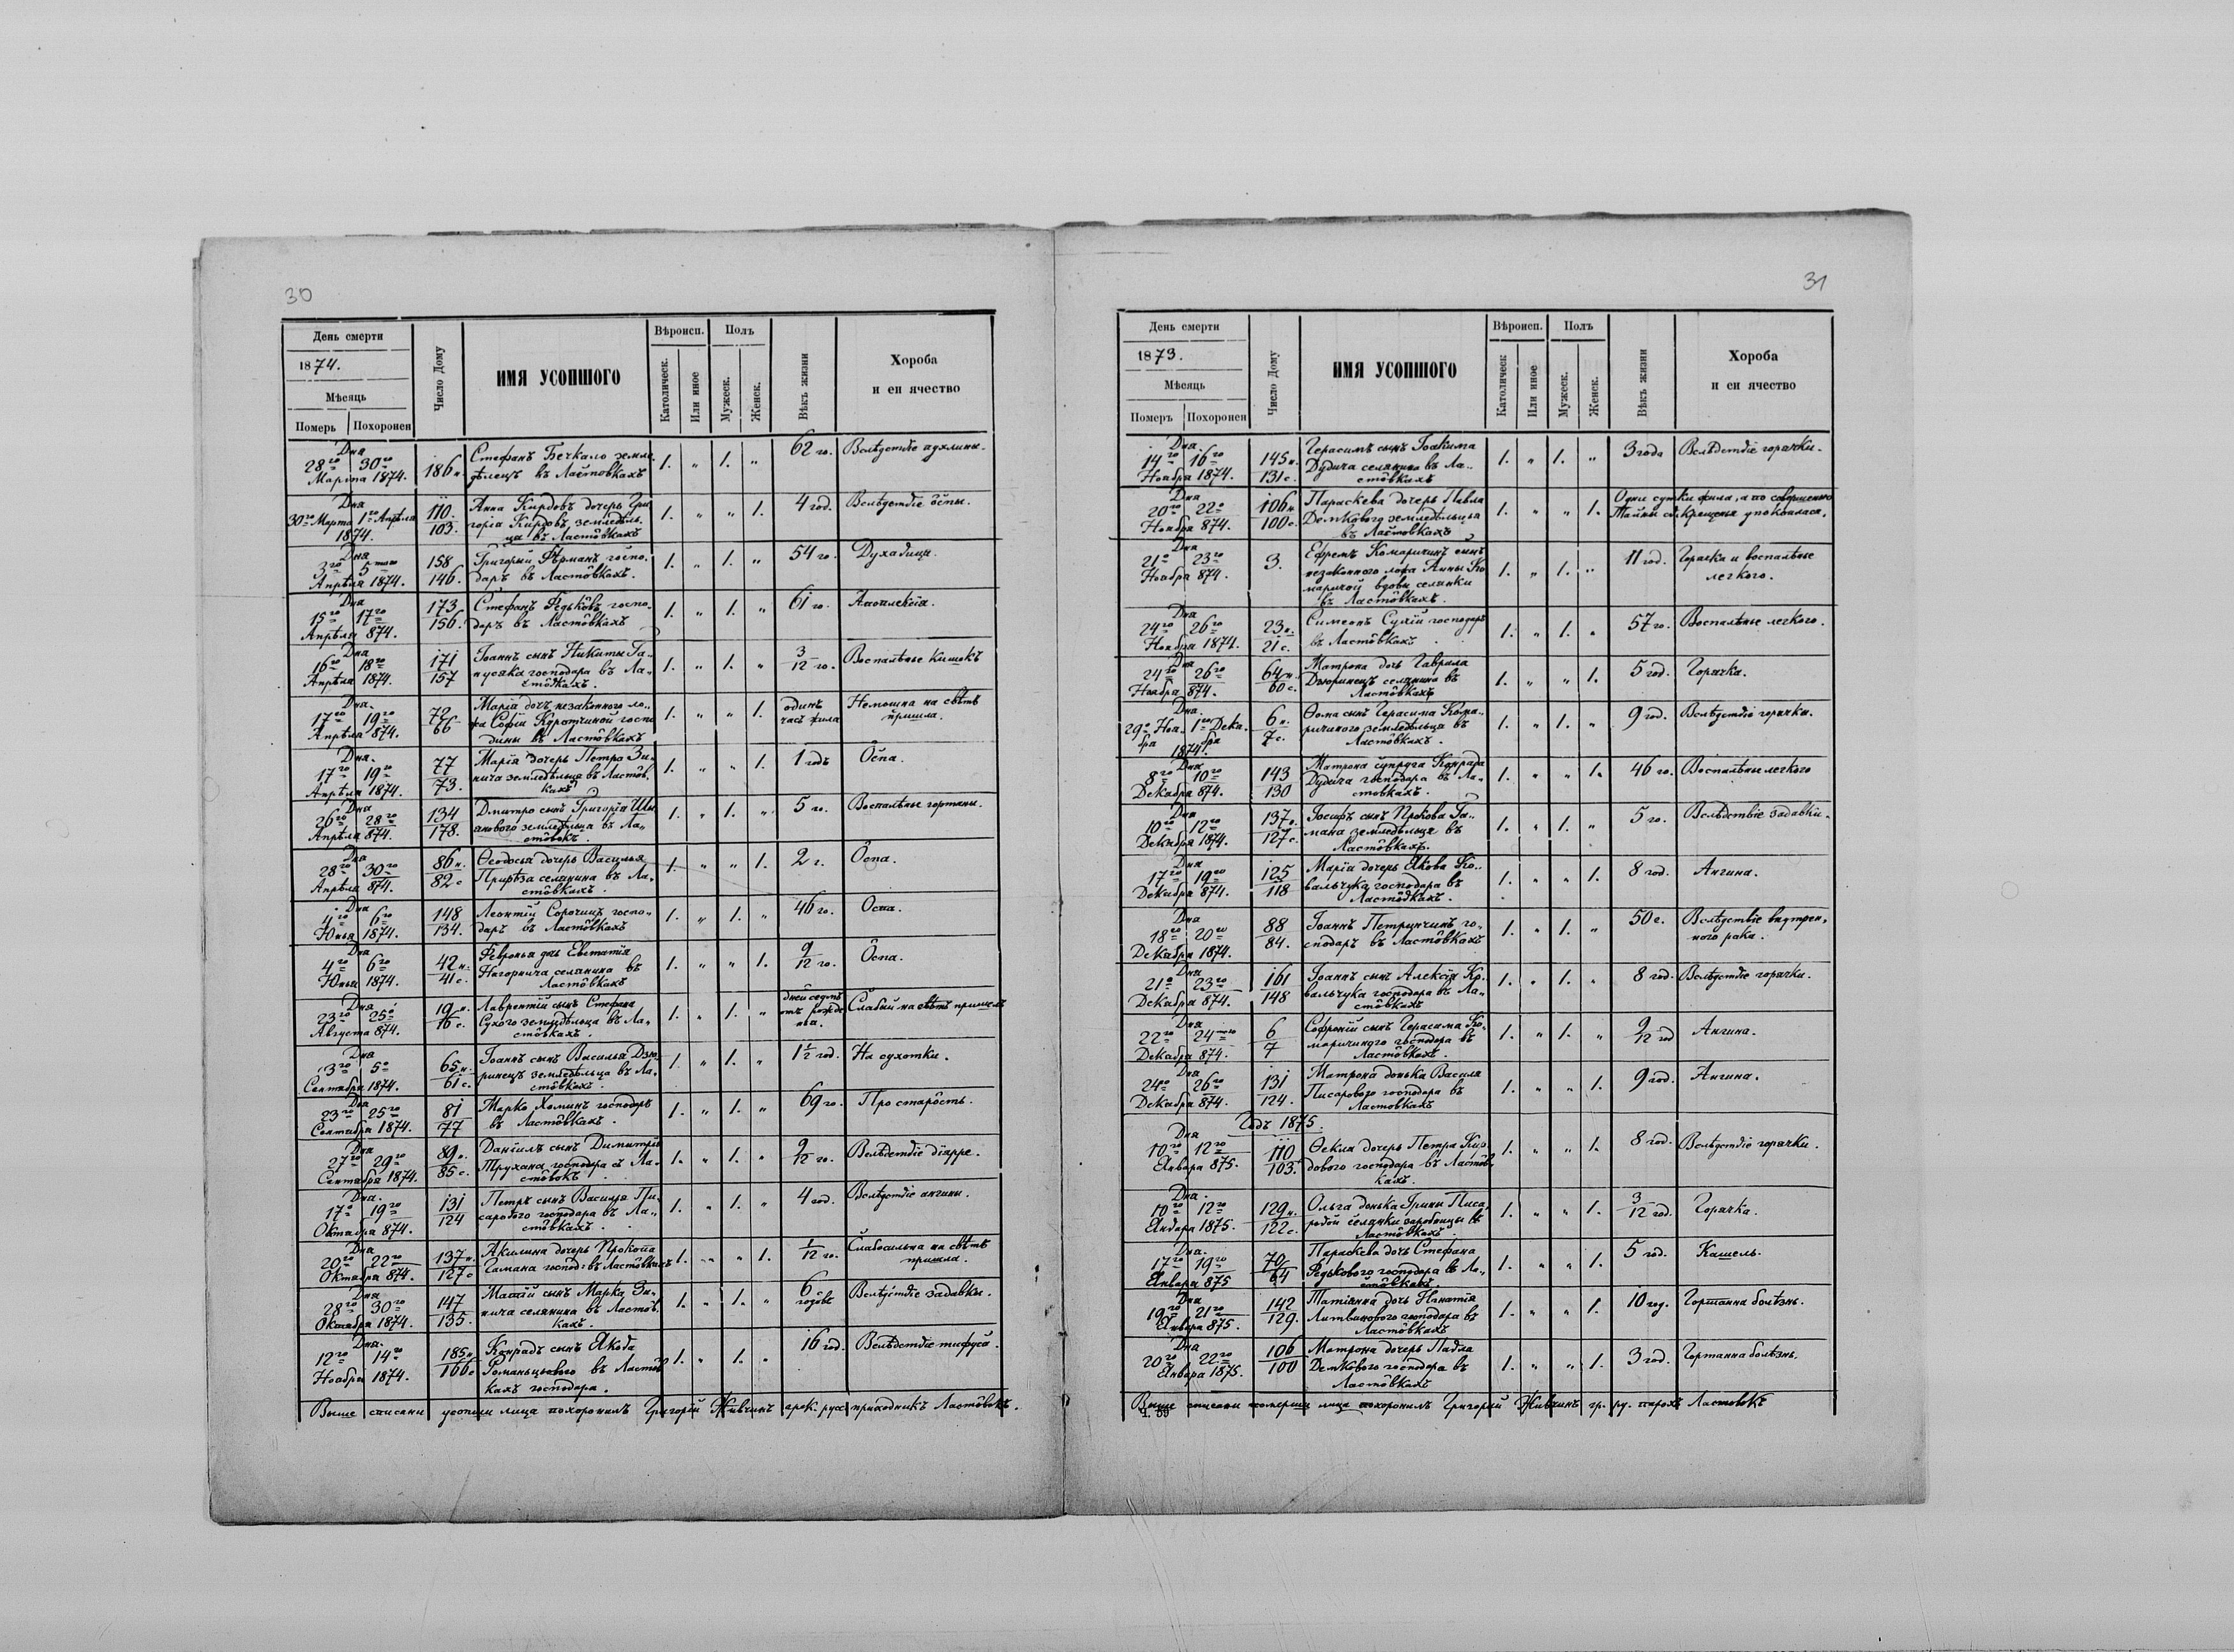 30
День смерти
1874.
Мѣсяць
Померь Похоронен
Число Дому
ИМЯ УСОПШОГО
Вѣроисп.
Католическ.
Или иное
Полъ
Мужеск.
Женск.
Вѣкъ жизни
Хороба
и еи ячество
Дна
28го 30го
Марта 1874.
186н.
Стефанъ Бечкало земле
дѣлецъ въ Ластовкахъ
1. „ 1. „
62 го.
Вслѣдствіе пухлины.
Дна
30го Марта 1го Апрѣля
1874.
110.
103.
Анна Кирдовъ дочерь Гри
горія Кирдовъ земледѣль
ца въ Ластôвкахъ
1. „ „ 1.
4 год.
Вслѣдствіе ôспы.
Дна
3го 5того
Апрѣля 1874.
158
146.
Григорый Фурманъ госпо.
даръ въ Ластôвкахъ.
1. „ 1. „
54 го.
Духавица.
Дна
15го 17го
Апрѣля 874.
173.
156.
Стефанъ Федькôвъ госпо.
даръ въ Ластôвкахъ
1. „ 1. „
61 го.
Апоплексія.
Дна
16го 18го
Апрѣля 1874.
171
157
Іоаннъ сынъ Никиты Га
пусяка господара въ Ла„
стôвкахъ.
1. „ 1. „
3/12 го.
Воспалѣнье кишокъ
Дна.
17го 19го
Апрѣля 874.
72
66
Марія дочъ незаконного ло„
жа Софіи госпо
дины въ Ластôвкахъ
1. „ „ 1.
одинъ
часъ жила
Немощна на свѣтъ
пришла.
Дна.
17го 19го
Апрѣля 1874.
77
73.
Марія дочерь Петра Зи„
нича земледѣльца въ Ластôв.
кахъ
1. „ „ 1.
1 годъ
Ôспа.
Дна
26го 28го
Апрѣля 874.
134
178.
Дмитро сынъ Григорія
земледѣльца въ Ла„
стôвкахъ.
1. „ 1. „
5 го.
Воспалѣнье гортаны.
Дна
28го 30го
Апрѣля 874.
86н.
82с
Ѳеодосья дочерь Василья
Прирѣза селянина въ Ла„
стôвкахъ.
1. „ „ 1.
2 г.
Ôспа.
Дна
4го 6го
Юнья 1874.
148
134.
Леонтій Сорочичъ госпо„
даръ въ Ластôвкахъ
1. „ 1. „
46 го.
Оспа.
Дна
4го 6го
Юнья 1874.
42н.
41с.
Февронья дочь Евстатія
Нагорнича селянина въ
Ластôвкахъ
1. „ „ 1.
9/12 го.
Ôспа.
Дна
23го 25го
Августа 874.
19н.
16с.
Лаврентій сынъ Стефана
Сухого земледѣльца въ Ла„
стôвкахъ.
1. „ 1. „
дней седмь
отъ рожде
нья.
Слабый на свѣтъ пришелъ
Дна
3го 5го
Сентября 1874.
65н.
61с.
Іоаннъ сынъ Василья Дзю
ринецъ земледѣльца въ Ла„
стôвкахъ.
1. „ 1. „
1½ год.
На сухотки.
Дна
23го 25го
Сентября 1874.
81
77
Марко Хоминъ господаръ
въ Ластôвкахъ.
1. „ 1. „
69 го.
Про старôсть.
Дна
27го 29го
Сентября 1874.
89н.
85с.
Даніилъ сынъ Димитрія
Трухана господара съ Ла„
стôвокъ.
1. „ 1. „
9/12 го.
Вслѣдствіе діярре.
Дна.
17го 19го
Октября 874.
131
124
Петръ сынъ Василья Пи„
сарового господара въ Ла„
стôвкахъ.
1. „ 1. „
4 год.
Вслѣдствіе ангины.
Дна
20го 22го
Октября 874.
137н.
127с
Акилина дочерь Прокопа
Гамана господ: въ Ластôвкахъ
1. „ „ 1.
1/12 го.
Слабосильна на свѣтъ
пришла.
Дна
28го 30го
Октября 1874.
147
135.
Матѳій сынъ Марка Зи„
нича селянина въ Ластôв.
кахъ.
1. „ 1. „
6
годôвъ
Вслѣдствіе задавки.
Дна.
12го 14го
Ноября 1874.
185н.
166с
Конрадъ сынъ Якова
Романьцьового въ Ластôв
кахъ господара.
1. „ 1. „
16 год.
Вслѣдствіе тифуса.
Выше списани усопши лица похоронилъ Григорій Живчинъ грек. русс. приходникъ Ластôвокъ.
31
День смерти
1873.
Мѣсяць
Померъ Похоронен
Число Дому
ИМЯ УСОПШОГО
Вѣроисп.
Католическ
Или иное
Полъ
Мужеск.
Женск.
Вѣкъ жизни
Хороба
и еи ячество
Дна.
14го 16го
Ноября 1874.
145н.
131с.
Герасимъ сынъ Іоакима
Дудича селянина въ Ла„
стôвкахъ
1. „ 1. „
3 года
Вслѣдствіе горячки.
Дна
20го 22го
Ноября 874.
106н.
100с.
Параскева дочерь Павла
Демкового земледѣльца
въ Ластôвкахъ
1. „ „ 1.
Одни сутки жила, а по совершенью
Тайны св. Крещенья упокоилася.
Дна
21го 23го
Ноября 874.
3.
Ефремъ Комаричинъ сынъ
незаконного ложа Анны Ко
маричой вдовы селянки
въ Ластôвкахъ.
1. „ 1. „
11 год.
Горячка и воспалѣнье
легкого.
Дна
24го 26го
Ноября 1874.
23н.
21с.
Симеонъ Сухій господаръ
въ Ластôвкахъ.
1. „ 1. „
57 го.
Воспалѣнье легкого.
Дна
24го 26го
Ноября 874.
64н.
60с.
Матрона дочь Гаврила
Дзюринецъ селянина въ
Ластôвкахъ
1. „ „ 1.
5 год.
Горячка.
Дна.
29го Ноя„ 1го Дека„
бра бра
1874.
6н.
7с.
Ѳома сынъ Герасима Кома„
ричиного земледѣльца въ
Ластôвкахъ.
1. „ 1. „
9 год.
Вслѣдствіе горячки.
Дна
8го 10го
Декабря 874.
143
130
Матрона супруга Конрада
Дудича господара въ Ла„
стовкахъ.
1. „ „ 1.
46 го.
Воспалѣнье легкого
Дна
10го 12го
Декабря 1874.
137н.
127с.
Іосифъ сынъ Прокопа Га„
мана земледѣльца въ
Ластôвкахъ.
1. „ 1. „
5 го.
Вслѣдствіе задавки.
Дна
17го 19го
Декабря 874.
125
118
Марія дочерь Якова Ко„
вальчука господара въ
Ластôвкахъ.
1. „ „ 1.
8 год.
Ангина.
Дна
18го 20го
Декабря 1874.
88
84.
Іоаннъ Петрунчинъ го„
сподаръ въ Ластôвкахъ
1. „ 1. „
50 г.
Вслѣдствіе внутрен„
ного рака.
Дна
21го 23го
Декабря 874.
161
148
Іоаннъ сынъ Алексія Ко„
вальчука господара въ Ла„
стôвкахъ
1. „ 1. „
8 год.
Вслѣдствіе горячки.
Дна
22го 24того
Декабря 874.
6
7
Софроній сынъ Герасима Ко„
маричиного господара въ
Ластôвкахъ.
1. „ 1. „
9/12 год
Ангина.
Дна
24го 26го
Декабря 874.
131
124.
Матрона донька Василя
Писарового господара въ
Ластовкахъ
1. „ „ 1.
9 год.
Ангина.
Годъ 1875.
Дна
10го 12го
Января 875.
110
103.
Ѳекла дочерь Петра Кир
дового господара въ Ластôв„
кахъ.
1. „ „ 1.
8 год.
Вслѣдствіе горячки.
Дна.
10го 12го
Января 1875.
129н.
122с.
Ольга донька Ірины Писа„
ровой селянки заробницы въ
Ластôвкахъ.
1. „ „ 1.
3/12 год.
Горячка.
Дна.
17го 19го
Января 875
70
64
Параскева дочь Стефана
Федькового господара въ Ла„
стôвкахъ.
1. „ „ 1.
5 год.
Кашель.
Дна
19го 21го
Января 875.
142
129.
Татіянна дочь Игнатія
Литвинового господара въ
Ластôвкахъ
1. „ „ 1.
10 год.
Гортанна болѣзнь.
Дна
20го 22го
Января 1875.
106
100
Матрона дочерь Павла
Демкового господара въ
Ластôвкахъ
1. „ „ 1.
3 год.
Гортанна болѣзнь.
Выше списани померши лица похоронилъ Григорый Живчинъ гр. ру. парохъ Ластовокъ